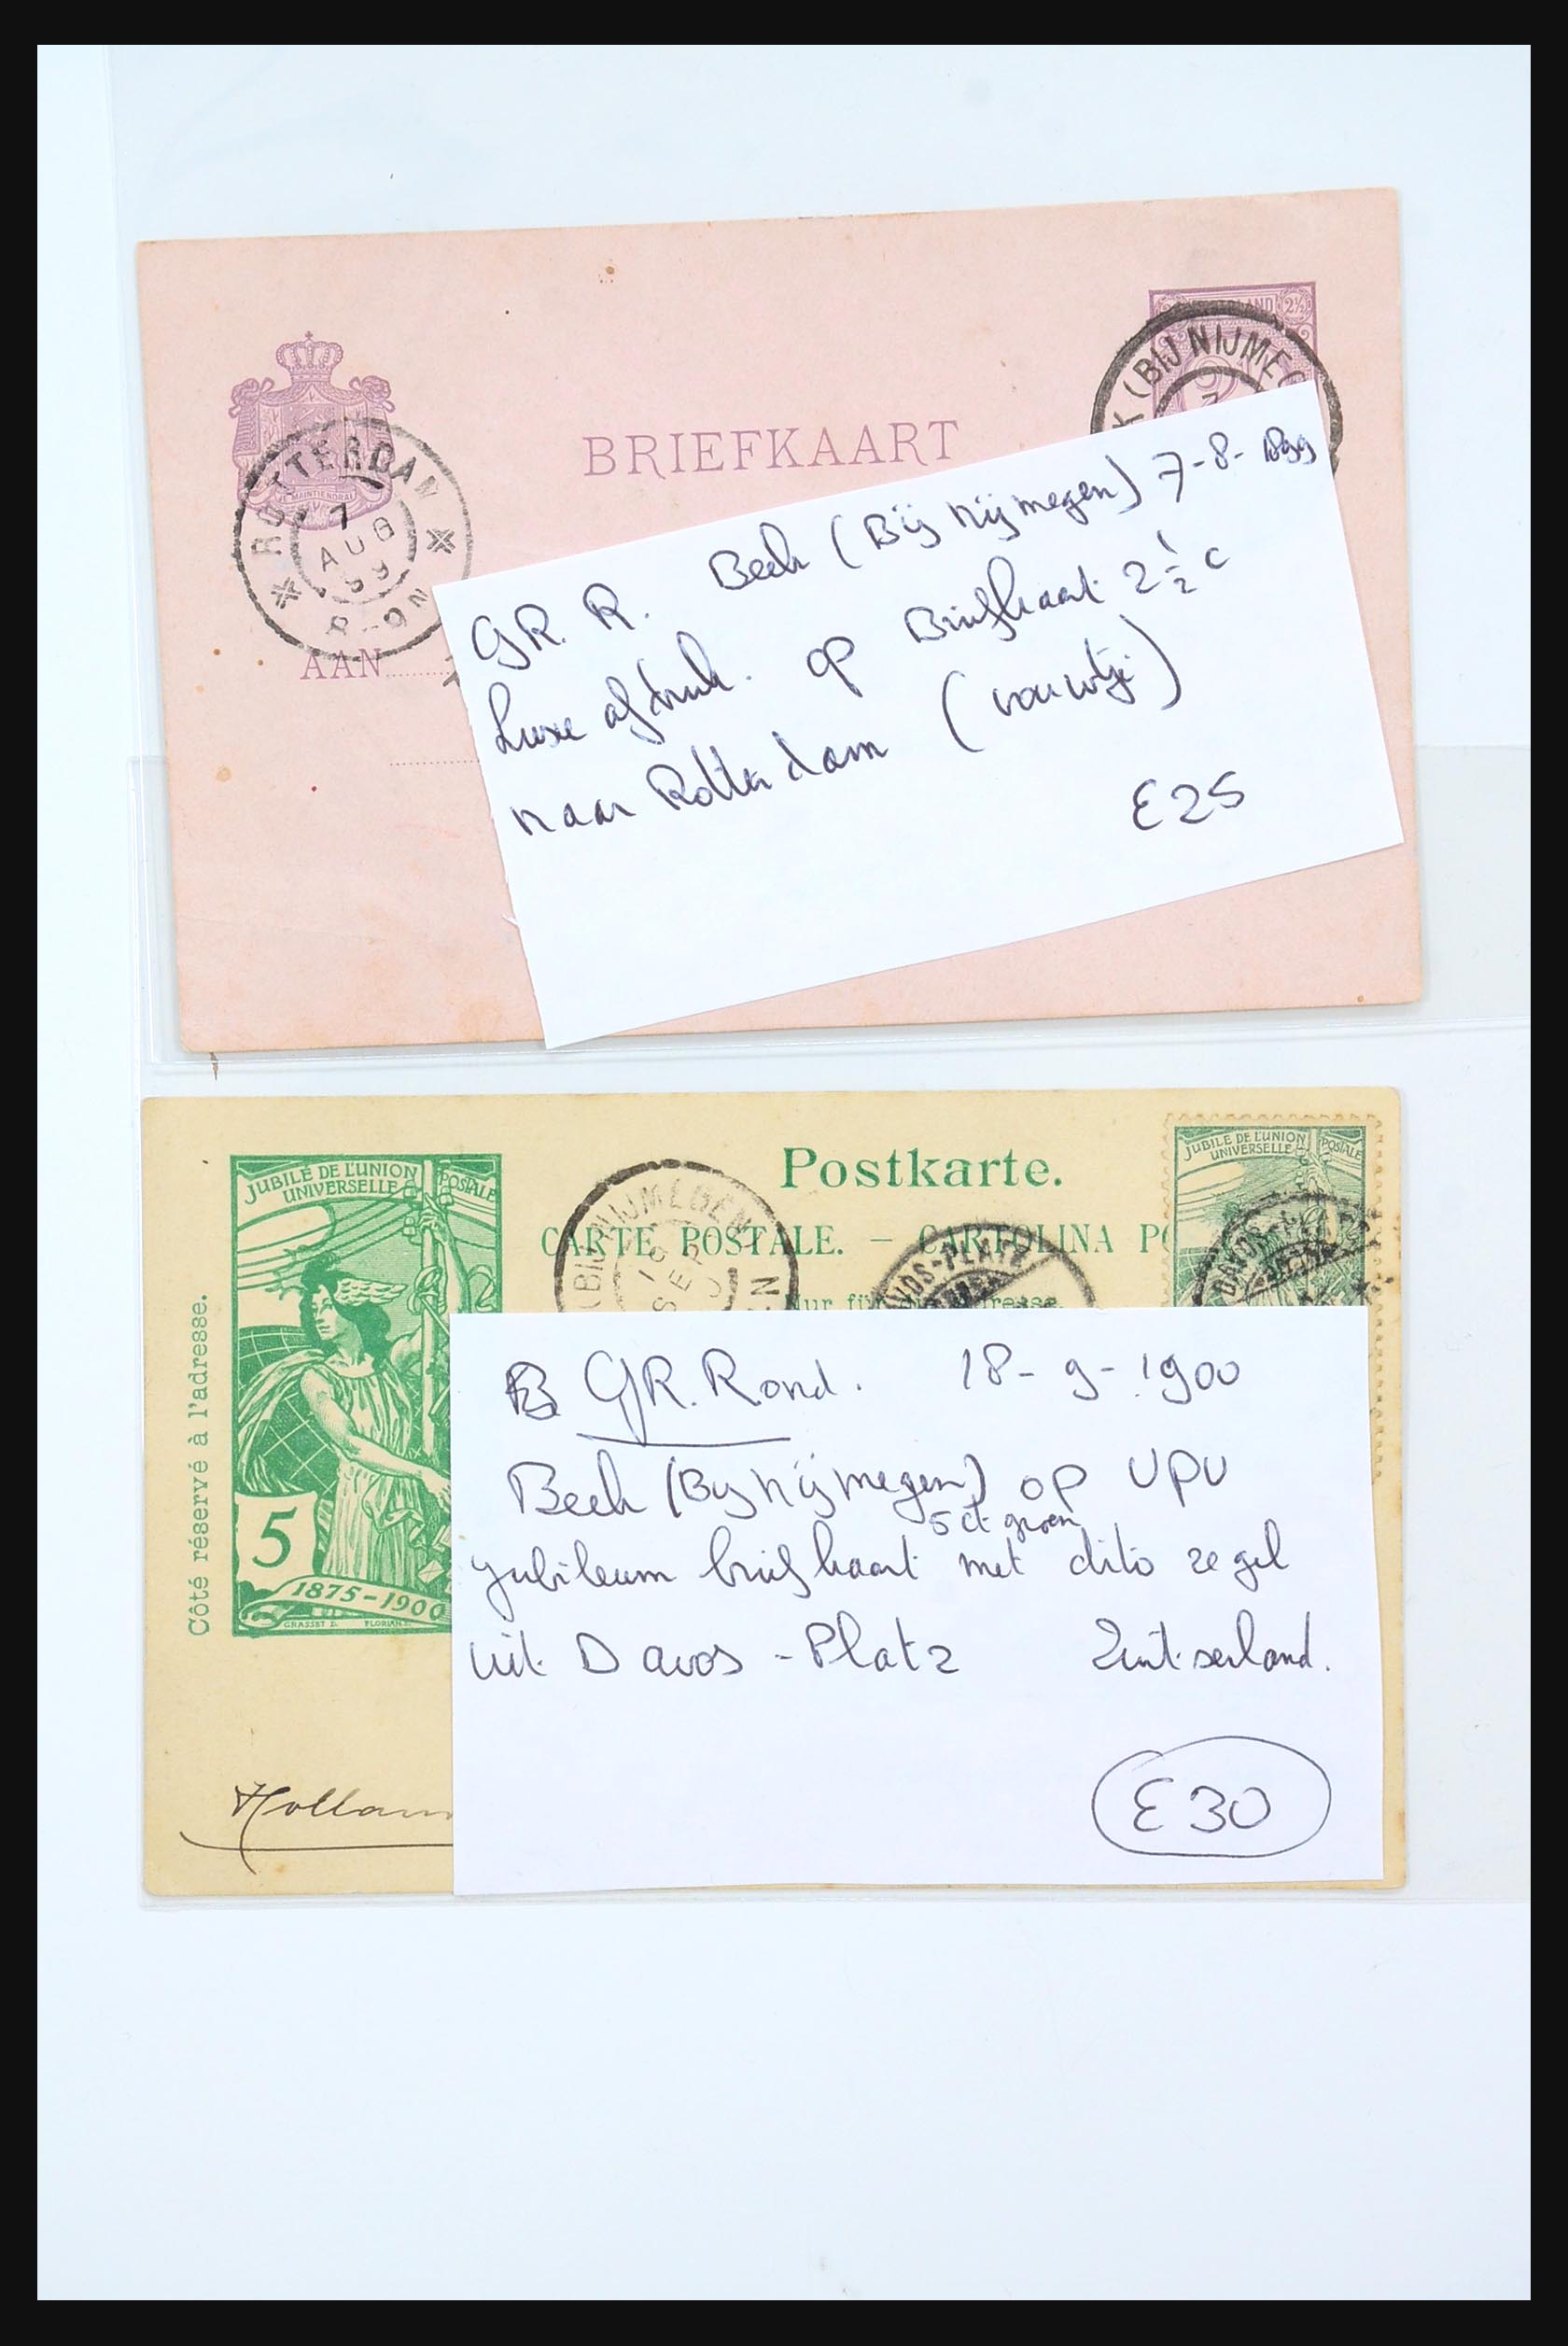 NEDERLAND 2½
(BIJ NIJMEG
BRIEFKAART
JE MAINTIENDRAI
ROTTERDAM
7
AUG
99
8-9N
AAN
GR. R. Beek (Bij Nijmegen) 7-8-1899
Luxe afdruk. op Briefkaart 2½ c
naar Rotterdam (vouwtje)
€25
Postkarte.
CARTE POSTALE. – CARTOLINA PO
Nur für die Adresse.
JUBILÉ DE L'UNION POSTALE
UNIVERSELLE
JUBILÉ DE L'UNION POSTALE
UNIVERSELLE
(BIJ NIJMEGEN)
SEP
DAVOS-PLATZ
DAVOS-PLATZ
Côté réservé à l'adresse.
5
1875-1900
GRASSET D. FLORIAN
GR. Rond. 18-9-1900
Beek (Bij Nijmegen) op UPU
5 ct groen
jubileum briefkaart met dito zegel
uit Davos-Platz Zwitserland.
€30
Hollan